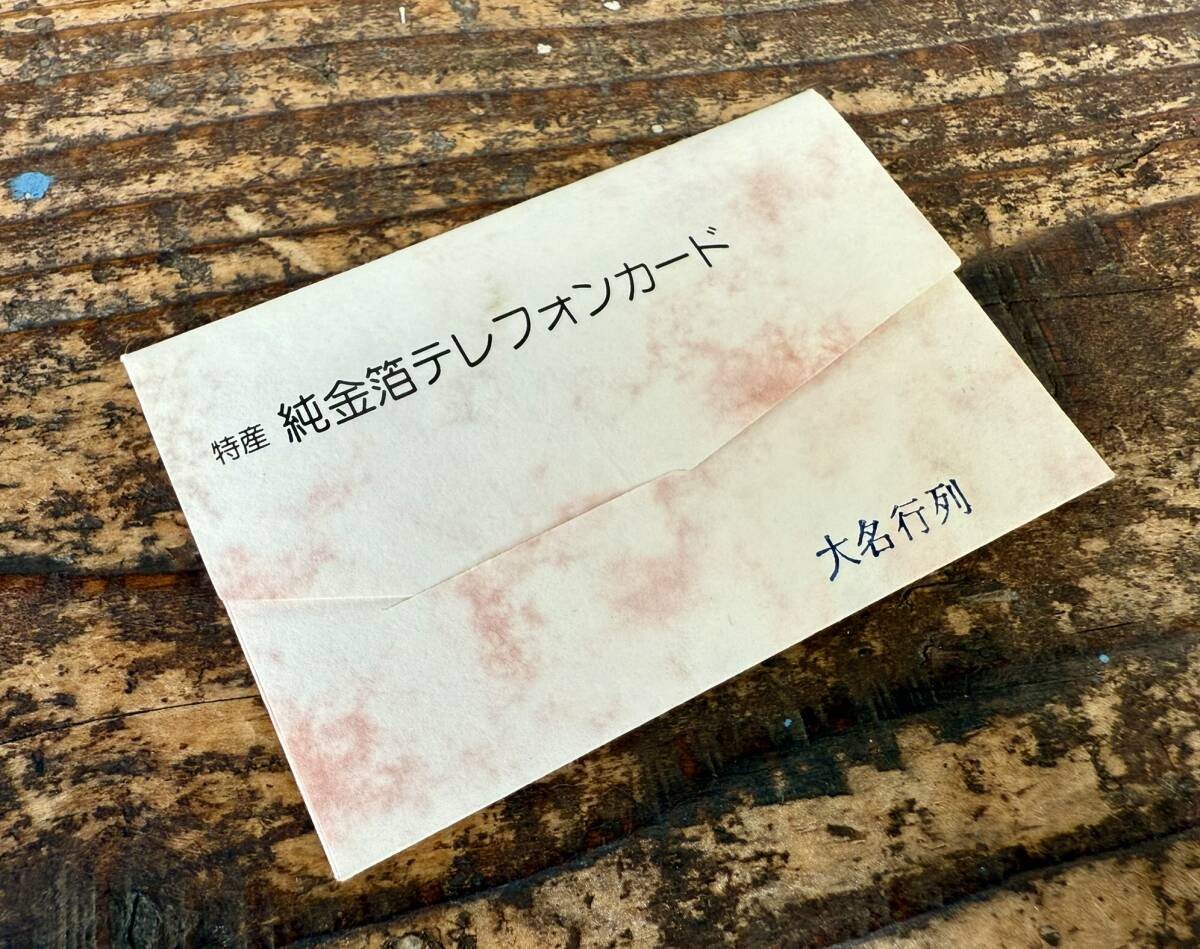 特産 純金箔テレフォンカード
大名行列